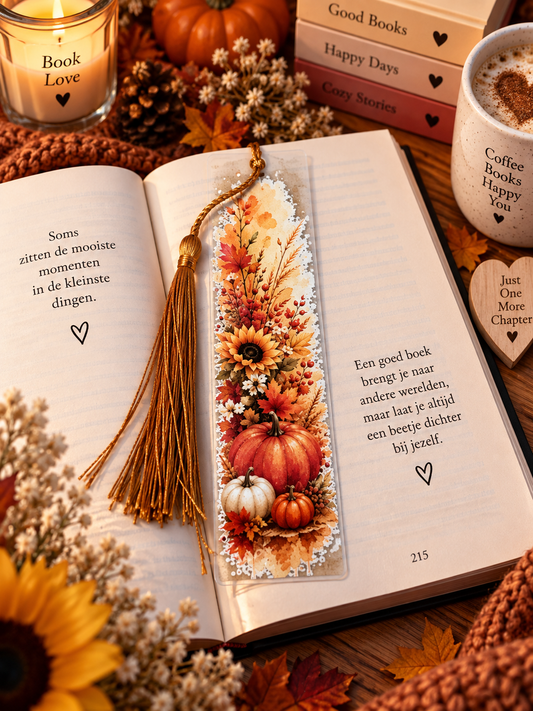 Book
Love
Good Books
Happy Days
Cozy Stories
Coffee
Books
Happy
You
Just
One
More
Chapter
Soms
zitten de mooiste
momenten
in de kleinste
dingen.
Een goed boek
brengt je naar
andere werelden,
maar laat je altijd
een beetje dichter
bij jezelf.
215